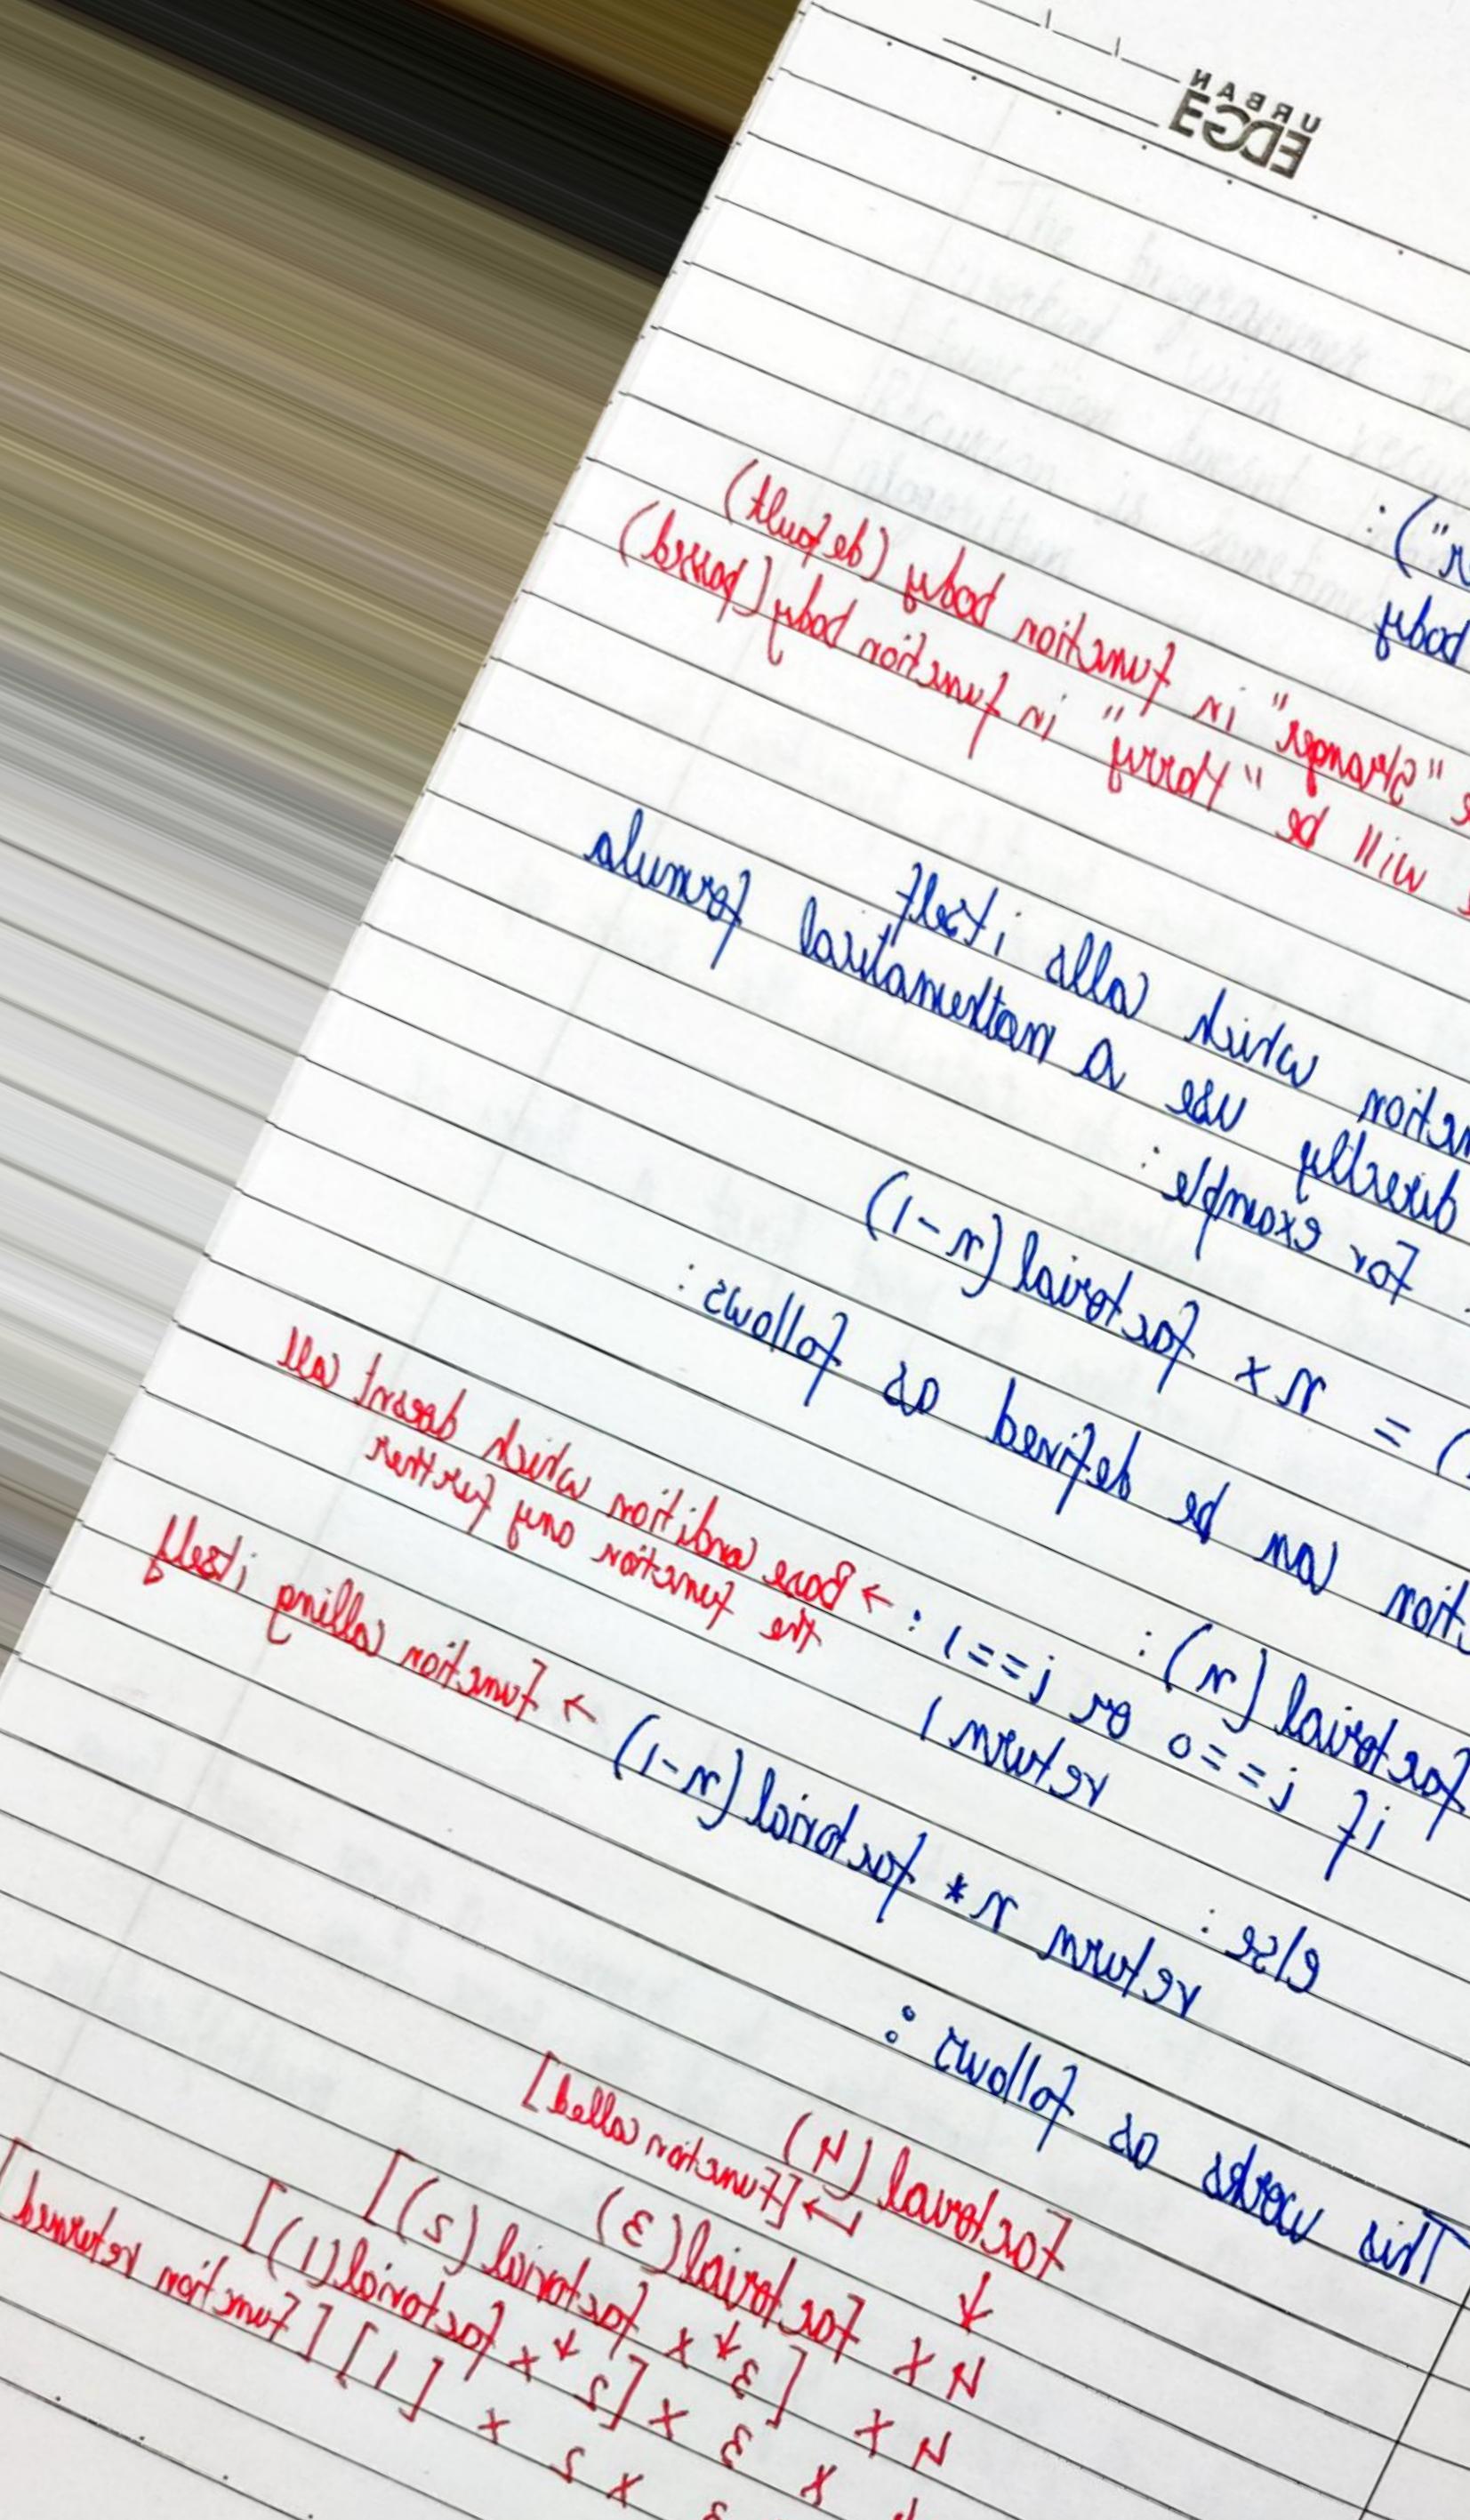 URBAN
EDGE
r"):
body
"Stranger" in function body (default)
will be "Harry" in function body (passed)
which calls itself
directly use a mathematical formula
For example:
) = n x factorial (n-1)
can be defined as follows:
factorial (n):
if i==0 or i==1 : → Base condition which doesnt call
the function any further
return 1
else:
return n * factorial (n-1) → function calling itself
This works as follows:
Factorial (4)
→ [Function called]
↓
4 x Factorial (3)
4 x [3 x factorial (2)]
x 3 x [2 x factorial (1)]
3 x 2 x [1] [Function returned]